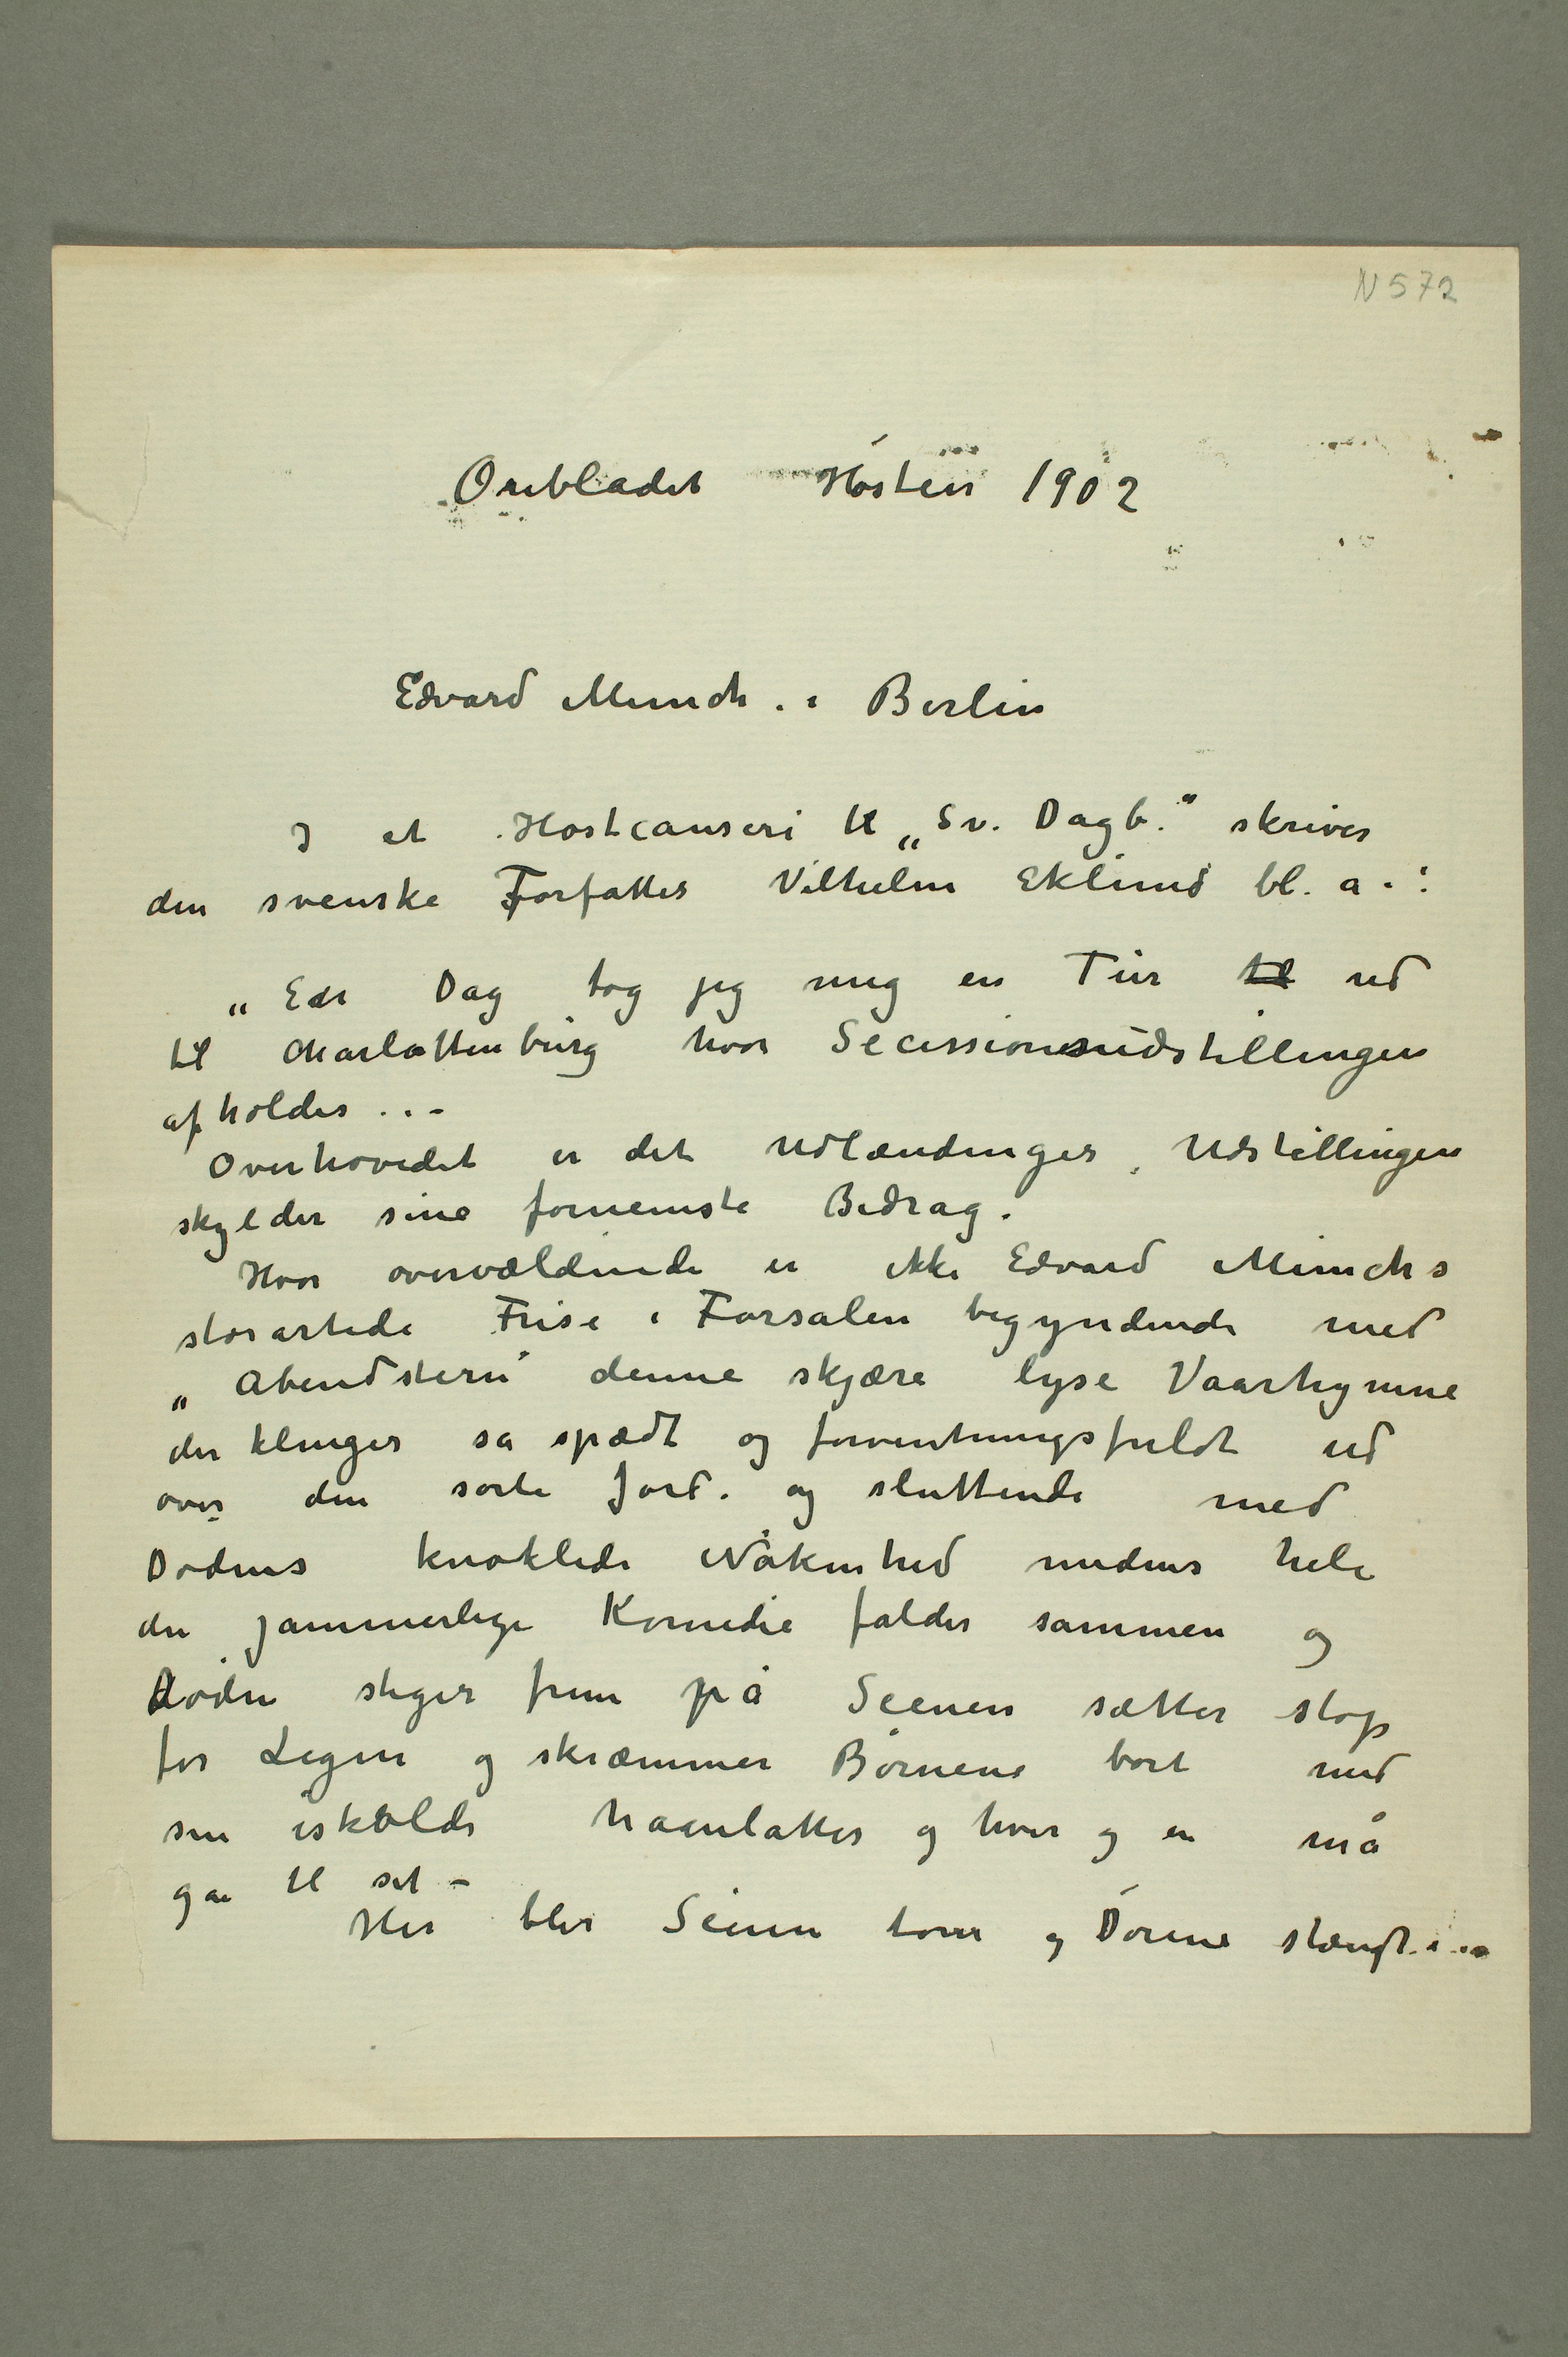 N 572
Ørebladet Høsten 1902
Edvard Munch. i Berlin
I et Høstcauseri til „Sv. Dagb.“ skriver
den svenske Forfatter Vilhelm Eklund bl. a. :
„Een Dag tog jeg mig en Tur til ud
til Charlottenburg hvor Secessionsudstillingen
afholdes ...
Overhovedet er det Udlændinger, Udstillingen
skylder sine fornemste Bidrag.
Hvor overvældende er ikke Edvard Munchs
storartede Frise i Forsalen begyndende med
„Abendstern“ denne skjære lyse Vaarhymne
der klinger så spædt og forventningsfuldt ud
over den sorte Jord. og sluttende med
Dødens knoklede Nåkenhed medens hele
den jammerlige Komedie falder sammen og
Døden stiger frem på Scenen sætter stop
for Legen og skræmmer Børnene bort med
sin iskolde haanlatter og hver og en må
gå til sit –
Her blir Scenen tom og Dørene stængt ...